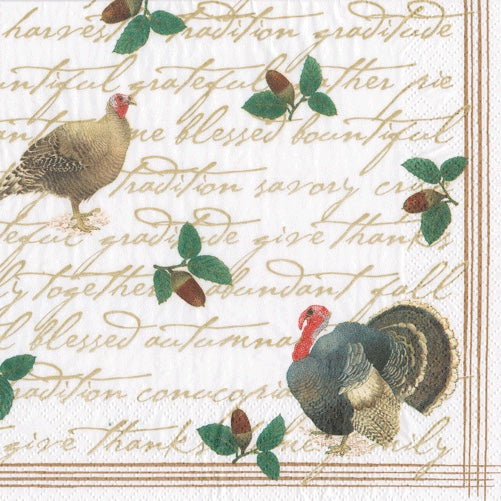 harvest tradition gradidude
grateful gather pie
blessed bountiful
tradition savory
gratidude give thanks
together abundant fall
blessed autumna
give thanks family